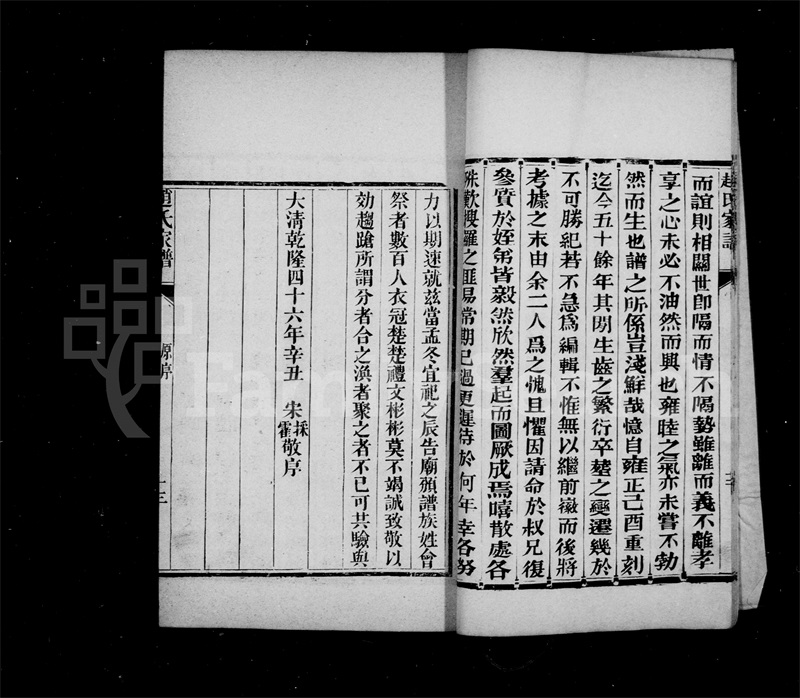 趙氏家譜
而誼則相關世即隔而情不隔勢雖離而義不離孝
享之心未必不油然而興也雍睦之氣亦未嘗不勃
然而生也譜之所係豈淺鮮哉憶自雍正己酉重刻
迄今五十餘年其閒生齒之繁衍卒塟之變遷幾於
不可勝紀若不急爲編輯不惟無以繼前徽而後將
考據之末由余二人爲之愧且懼因請命於叔兄復
參質於姪弟皆毅然欣然羣起而圖厥成焉嘻散處各
殊歎搜羅之匪易常期已過更遲待於何年幸各努
力以期速就兹當孟冬宜祀之辰告廟頒譜族姓會
祭者數百人衣冠楚楚禮文彬彬莫不竭誠致敬以
効趨蹌所謂分者合之渙者聚之者不已可共驗與
大淸乾隆四十六年辛丑 朱霍 採敬序
趙氏家譜 源序 十三